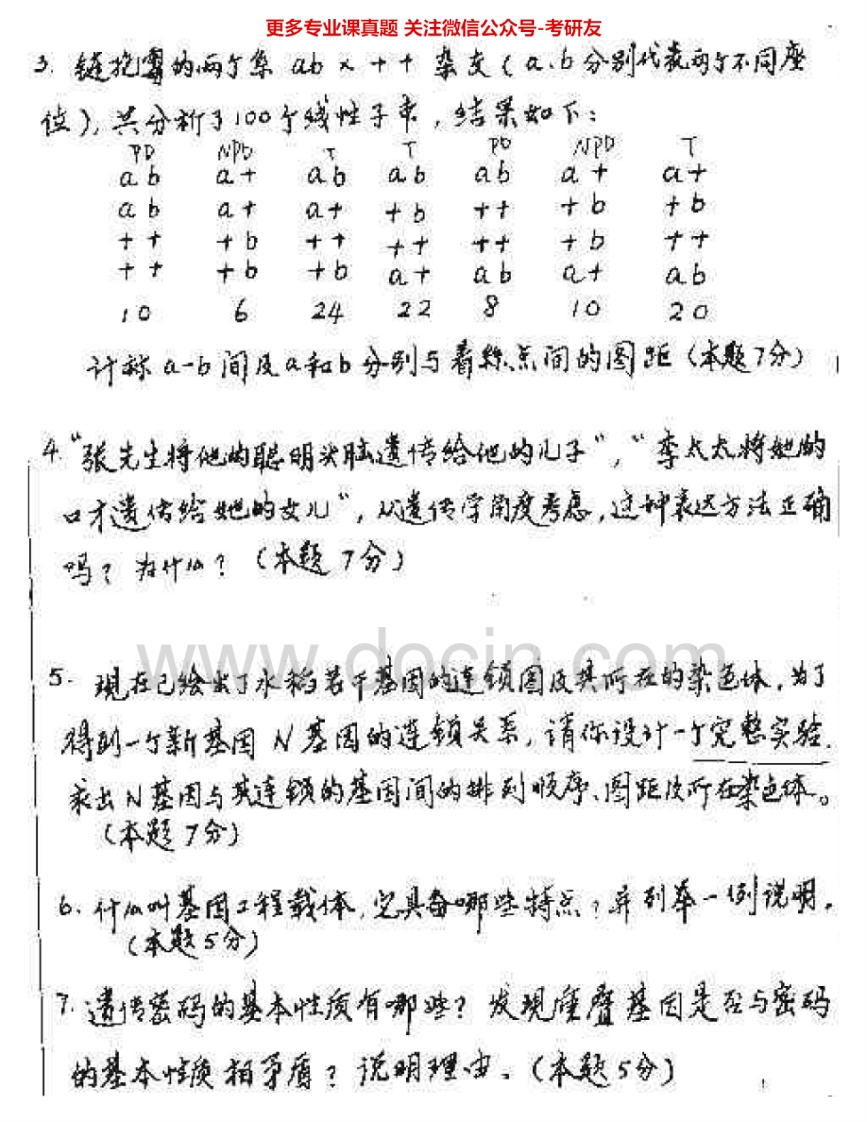 更多专业课真题 关注微信公众号-考研友
3. 链孢霉的两个系 ab × + + 杂交 ( a、b 分别代表两个不同座
位 ), 共分析了100个线性子束, 结果如下:
PD NPD T T PD NPD T
ab a+ ab ab ab a+ a+
ab a+ a+ +b ++ +b +b
++ +b ++ ++ ++ +b ++
++ +b +b a+ ab a+ ab
10 6 24 22 8 10 20
计称 a-b 间及a和b分别与着丝点间的图距 (本题7分)
4. “张先生将他的聪明头脑遗传给他的儿子”, “李太太将她的
口才遗传给她的女儿”, 从遗传学角度考虑, 这种表达方法正确
吗? 为什么? (本题7分)
www.docin.com
5. 现在已绘出了水稻若干基因的连锁图及其所在的染色体, 为了
得到一个新基因 N 基因的连锁关系, 请你设计一个完整实验.
求出 N基因与其连锁的基因间的排列顺序、图距及所在染色体。
(本题7分)
6. 什么叫基因工程载体, 它具备哪些特点? 并列举一例说明.
(本题5分)
7. 遗传密码的基本性质有哪些? 发现重叠基因是否与密码
的基本性质相矛盾? 说明理由. (本题5分)